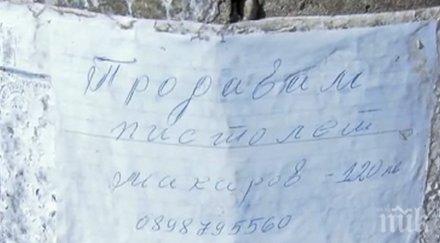 Продавам
пистолет
макаров - 120 лв
0898795560